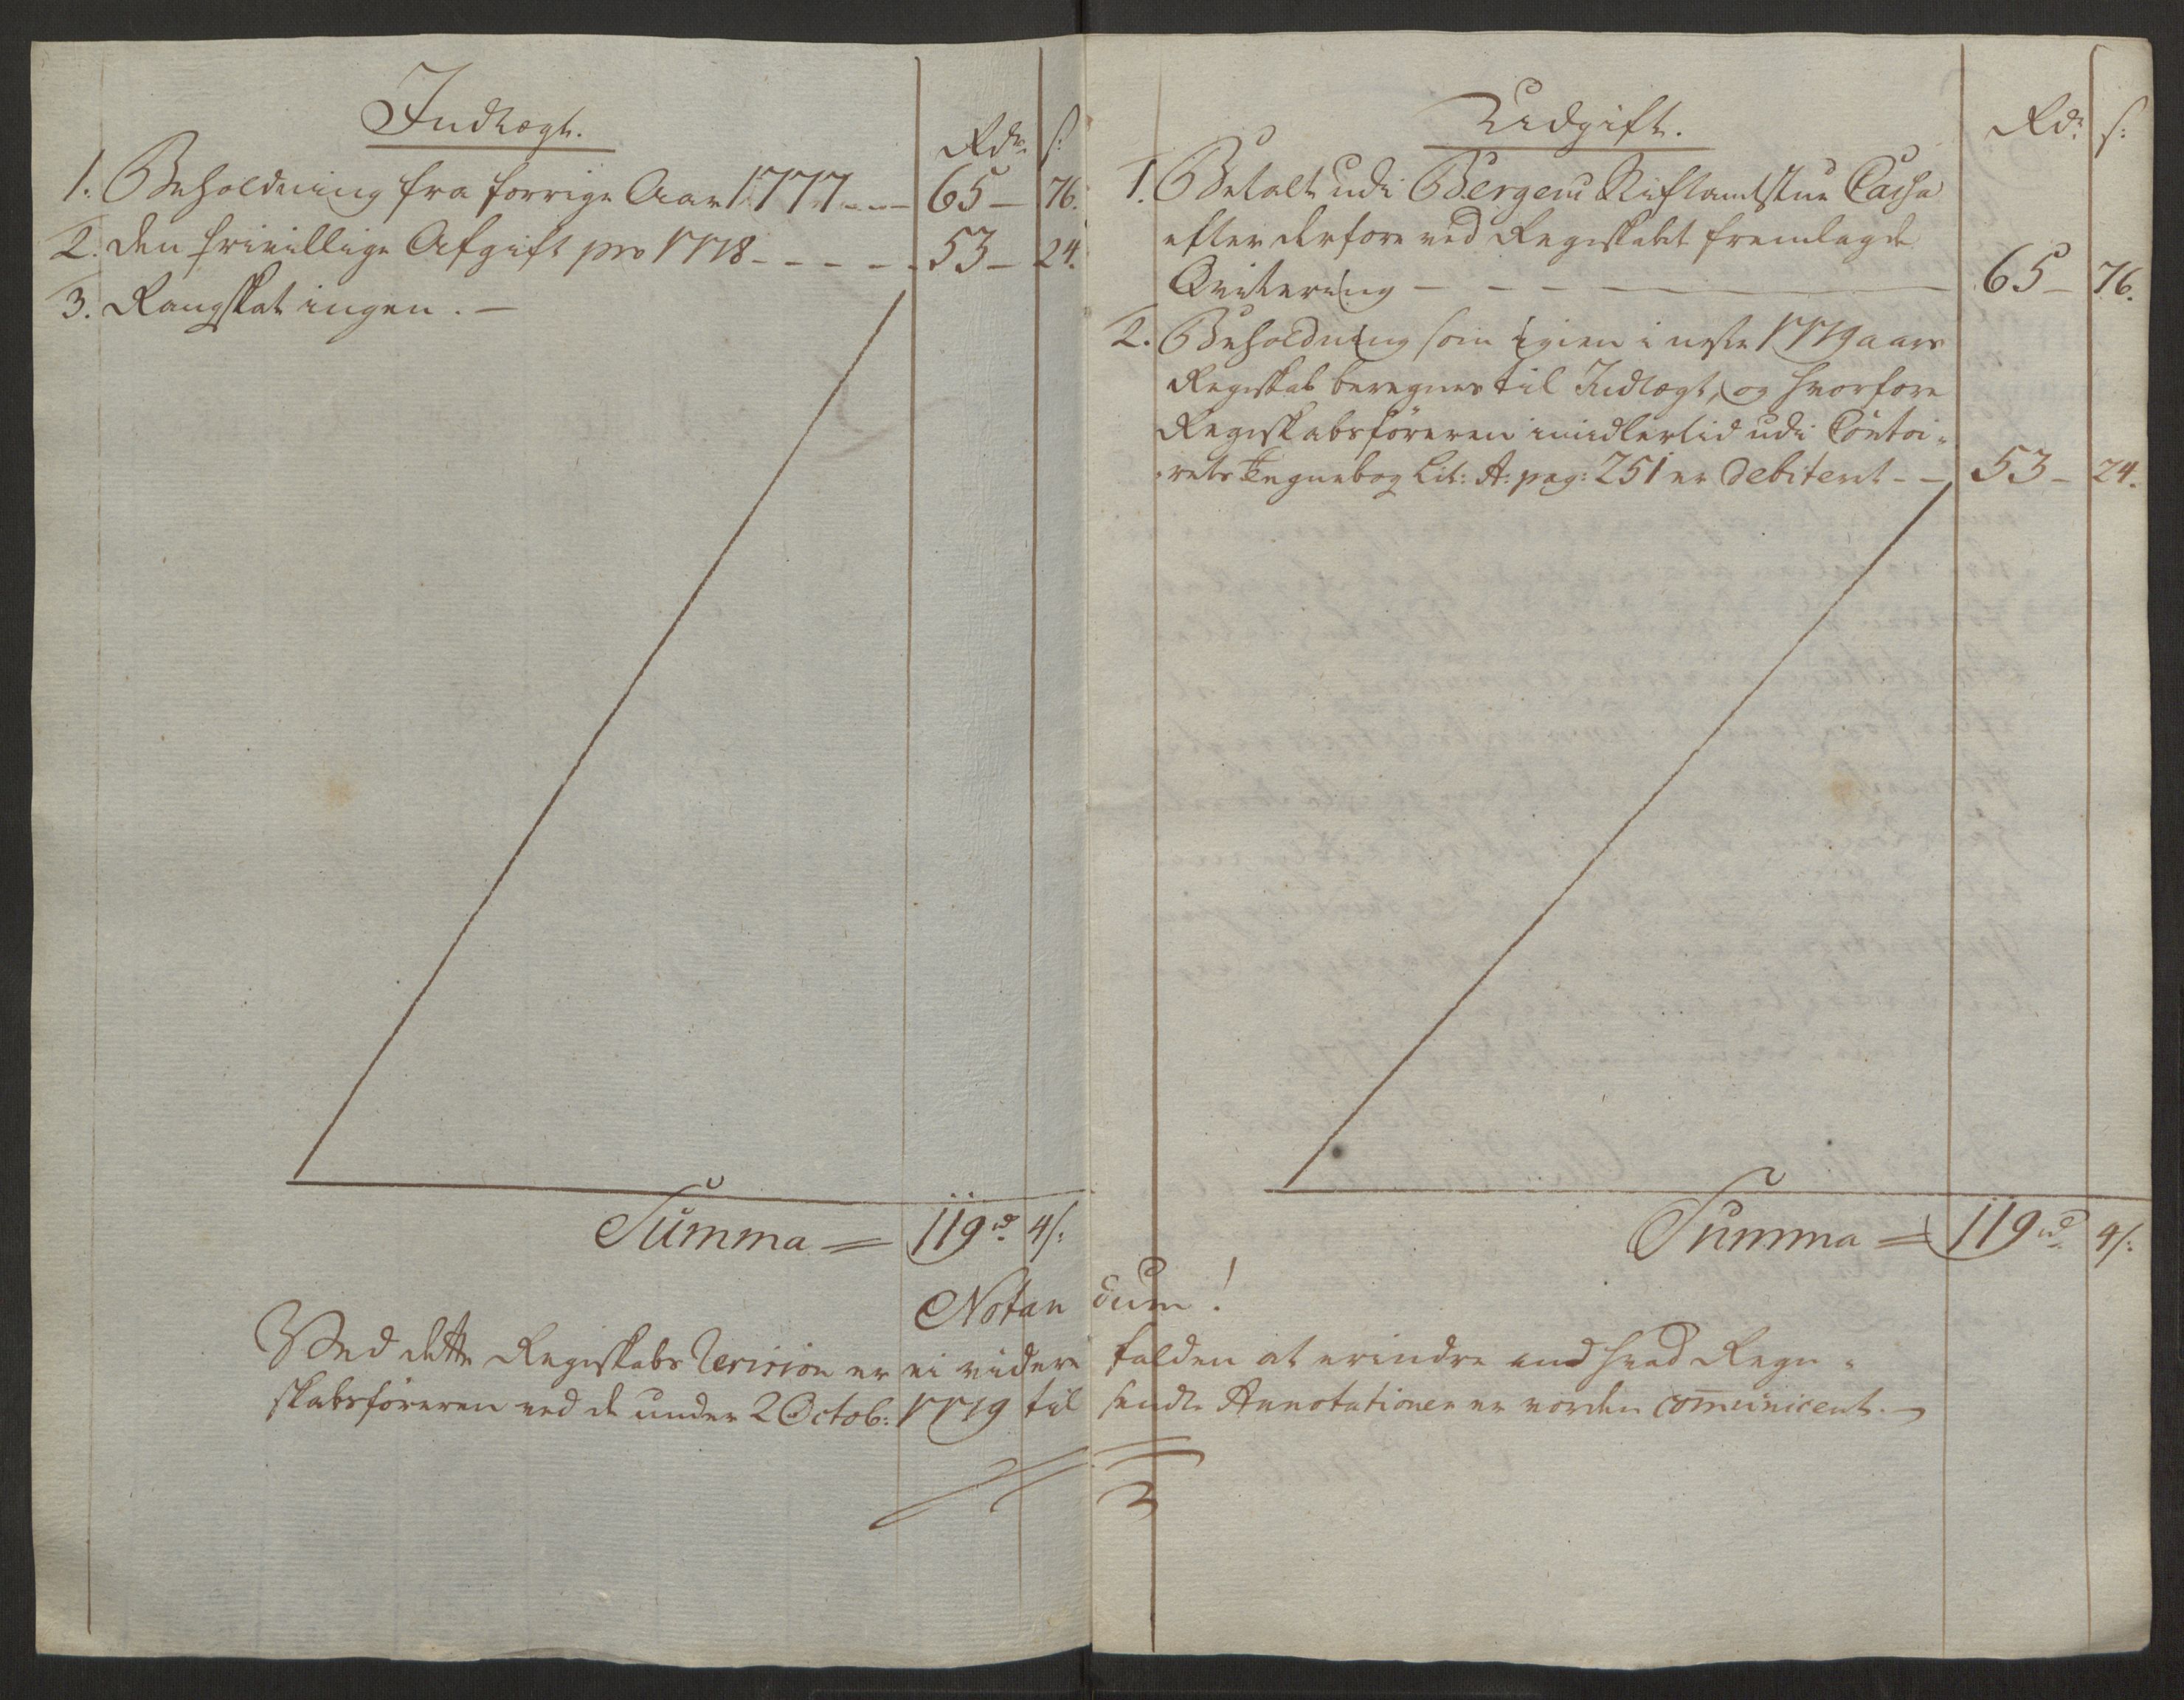 Indtægt.
Rdr. s:
1. Beholdning fra forrige Aar 1777 --- 65 - 76.
2. den frivillige Afgift pro 1778 - - - - - 53 - 24.
3. Rangskat ingen. -
Summa = 119 rd. 4 s:
Udgift.
Rdr. s:
1. Betalt udi Bergens Stiftamtstue Cassa
efter derfore ved Regnskabet fremlagde
Qvitering - - - - 65 - 76.
2. Beholdning som igien i neste 1779 aars
Regnskab beregnes til Indtægt, og hvorfore
Regnskabsföreren imidlertid udi Contoi-
rets Tegnebog Lit: A: pag: 251 er debiteret - - 53 - 24.
Summa = 119 rd. 4 s:
Notandum!
Ved dette Regnskabs Revision er ei videre falden at erindre end hvad Regn-
skabsföreren ved de under 2 Octob: 1779 til sendte Annotationer er vorden com̄uniceret. -